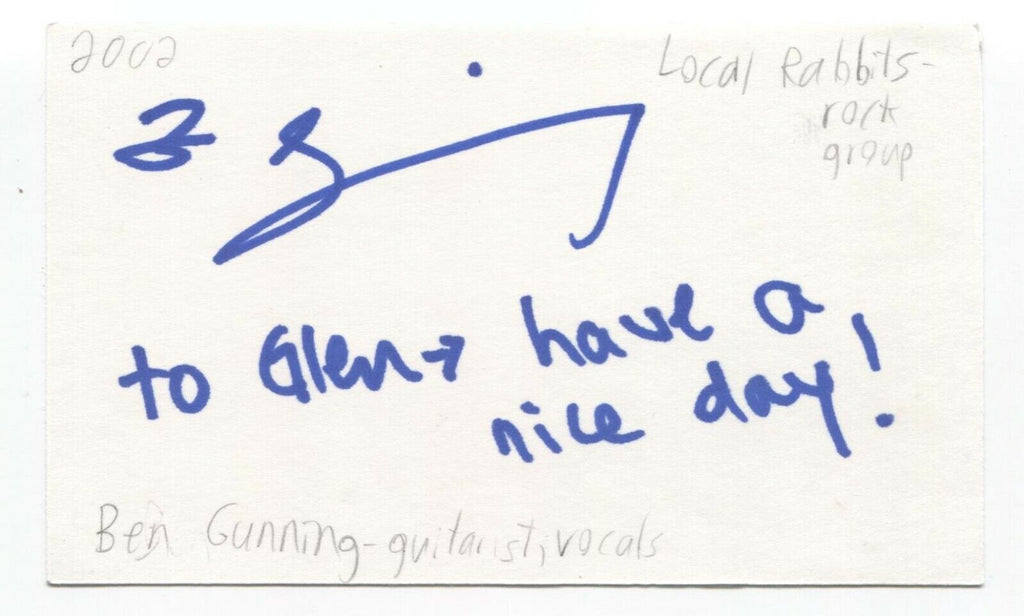 2002
Local Rabbits-
rock
group
to Glen→ have a
nice day!
Ben Gunning-guitarist, vocals